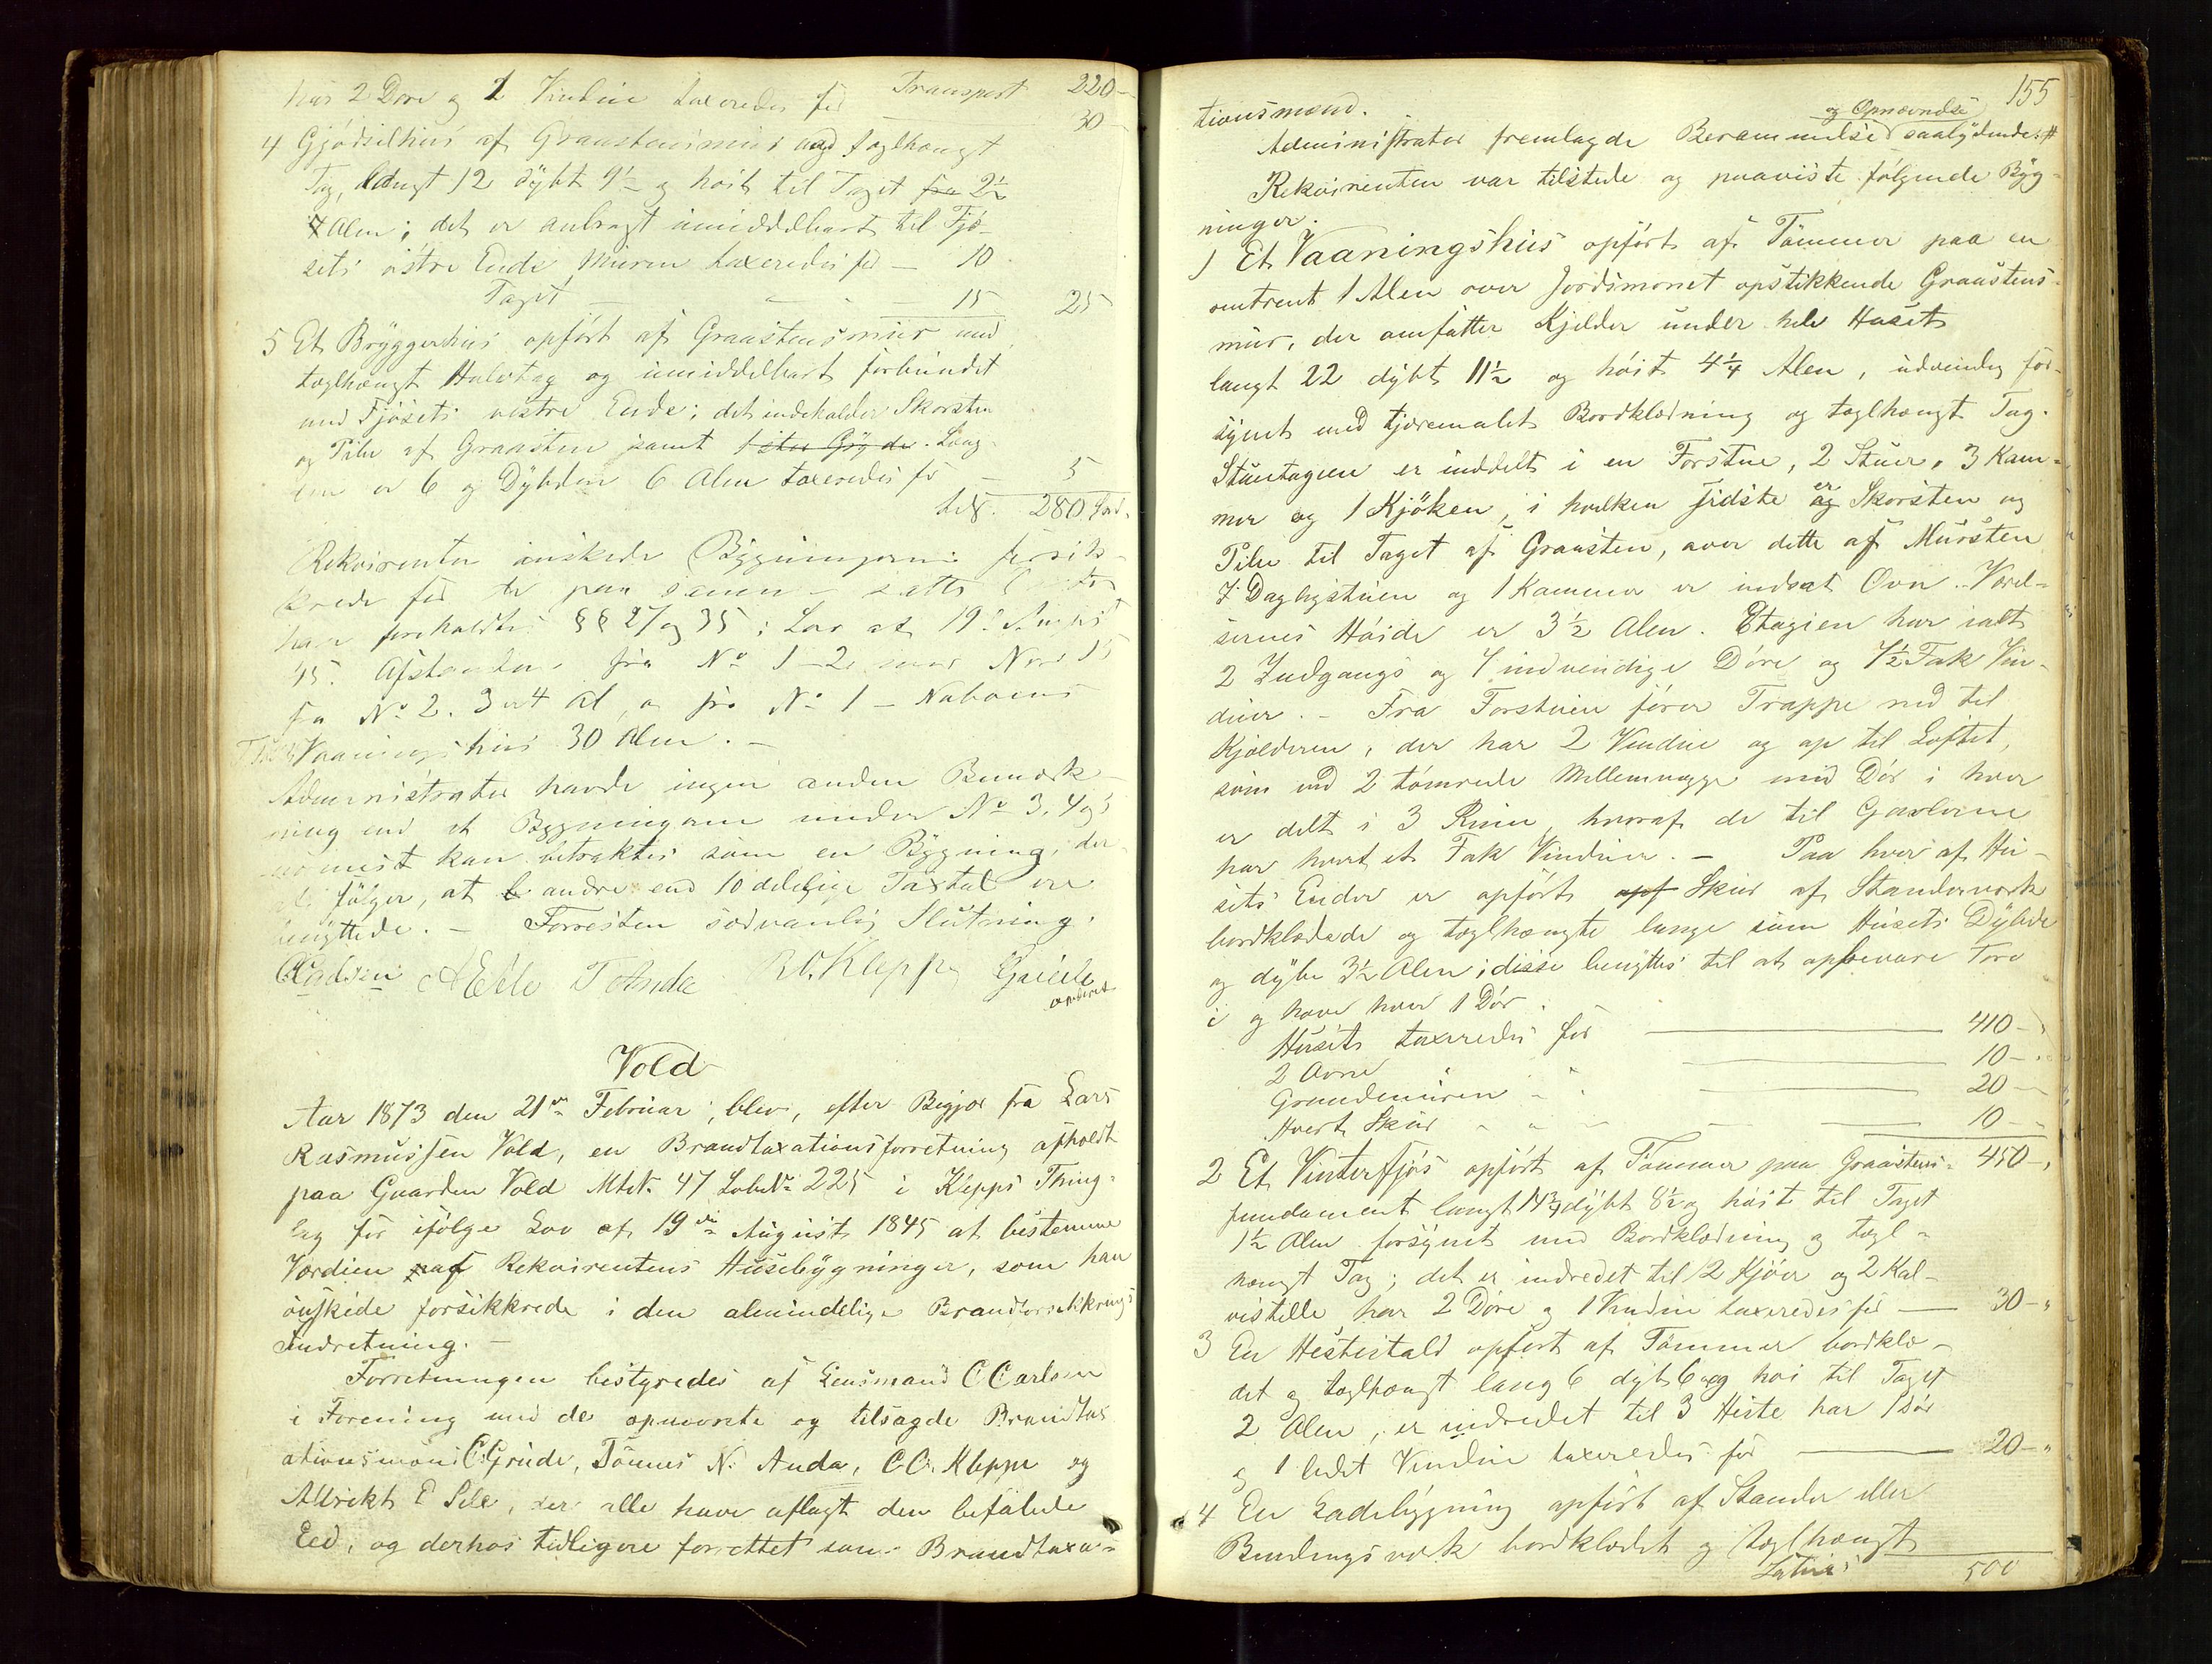 Transport 220-
har 2 Døre og 1 Vindue taxeredes for 30-
4 Gjødselhus af Graasteensmuur med taglhængt
Tag, langt 12 dybt 9½ og høit til Taget 2½
Alen; det er anbragt umiddelbart til Fjø-
sets østre Ende Muren taxeredes for — 10
Taget — 15 25
5 Et Bryggerhus opført af Graasteensmuur med
taglhængt Halvtag og umiddelbart forbundet
med Fjøsets vestre Ende; det indeholder Skorsten
og Pibe af Graasten samt 1 stor Gryde. Læng-
den er 6 og Dybden 6 Alen taxeredes for 5
tils. 280 Spd.
Rekvirenten ønskede Bygningerne forsik-
krede for de paa samme satte
han foreholdtes §§ 27 og 35 i Lov af 19de August
45. Afstanden fra No 1-2 mod Nord 15
fra No 2. 3 er 4 Al, og fra No 1 - Naboens
Vaaningshus 30 Alen. -
Administrator havde ingen anden Bemærk-
ning end at Bygningerne under No 3, 4 og 5
nærmest kan betraktes som en Bygning, der
af følger, at andre end 10 delelige Taxtal ere
benyttede. - Forresten sædvanlig Slutning.
CCarlsen AESele TAnda CC.Kleppe Grude
Vold
Aar 1873 den 21de Februar, blev, efter Begjær fra Lars
Rasmussen Vold, en Brandtaxationsforretning afholdt
paa Gaarden Vold Mtr. 47 Løbeno 225 i Klepps Thing-
lag for ifølge Lov af 19de August 1845 at bestemme
Værdien af Rekvirentens Husebygninger, som han
ønskede forsikkrede i den almindelige Brandforsikkrings
Indretning. -
Forretningen bestyredes af Lensmand C Carlsen
i Forening med de opnævnte og tilsagde Brandtax
ationsmænd C. Grude, Tønnes N. Anda, C C. Kleppe og
Albrikt E Sele, der alle have aflagt den befalede
Eed, og derhos tidligere forrettet som Brandtaxa-
155
tionsmænd.
og Opnævnelse
Administrator fremlagde Berammelse saalydende: #
Rekvirenten var tilstede og paaviste følgende Byg-
ninger.
1 Et Vaaningshus opført af Tømmer paa en
omtrent 1 Alen over Jordsmonet opstikkende Graastens-
mur, der omfatter Kjelder under hele Huset
langt 22 dybt 11½ og høit 4¼ Alen, udvendig for-
synet med tjæremalet Bordklædning og taglhængt Tag.
Stuetagen er inddelt i en Forstue, 2 Stuer, 3 Kam-
mer og 1 Kjøken, i hvilken sidste er Skorsten og
Pibe til Taget af Graasten, over dette af Mursten
I Dagligstuen og 1 Kammer er indsat Ovn. Værel-
sernes Høide er 3½ Alen. Etagien har ialt
2 Indgangs og 7 indvendige Døre og 7½ Fak Vin-
duer. - Fra Forstuen fører Trappe ned til
Kjelderen, der har 2 Vindue og op til Loftet,
som ved 2 tømrede Mellemvægge med Dør i hver
er delt i 3 Rum, hvoraf de til Gavlerne
har hvert et Fak Vinduer. - Paa hver af Hu-
sets Ender er opført opf Skur af Standerværk
bordklædede og taglhængte lange som Husets Dybde
og dybe 3½ Alen; disse benyttes til at opbevare Torv
i og have hver 1 Dør.
Huset taxeredes for — 410-
2 Ovne — 10-
Grundmuren — 20-
Hvert Skur — 10-
2 Et Vinterfjøs opført af Tømmer paa Graastens- 450-
fundament langt 14¾ dybt 8½ og høit til Taget
1½ Alen forsynet med Bordklædning og tagl-
hængt Tag; det er indredet til 12 Kjør og 2 Kal-
vestelle, har 2 Døre og 1 Vindue taxeredes for — 30-
3 En Hestestald opført af Tømmer bordklæ-
det og taglhængt lang 6 dyb 6 og høi til Taget
2 Alen, er indredet til 3 Heste har 1 Dør
og 1 lidet Vindue taxeredes for — 20-
4 En Ladebygning opført af Stander eller
Bindingsværk bordklædet og taglhængt
Latus 500